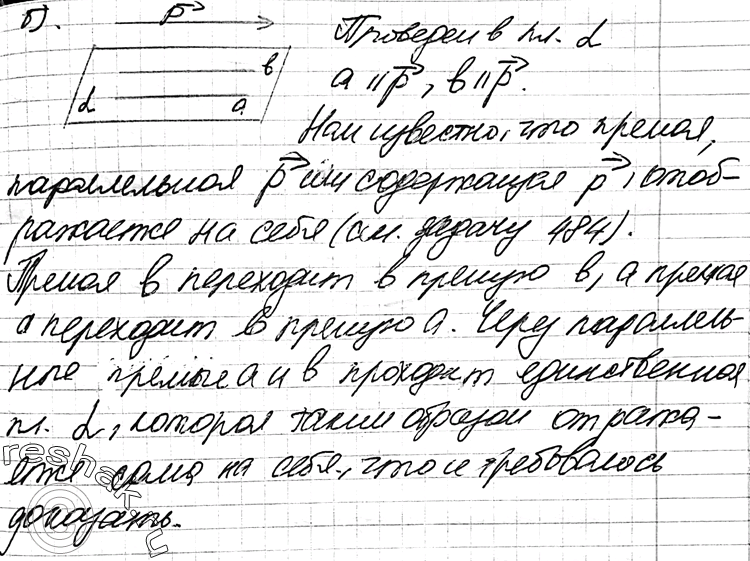 б). p Проведем в пл. α
α a в a ∥ p, в ∥ p.
Нам известно, что прямая,
параллельная p или содержащая p, отоб-
ражается на себя (см. задачу 484).
Прямая в переходит в прямую в, а прямая
a переходит в прямую a. Через параллель-
ные прямые a и в проходит единственная
пл. α, которая таким образом отража-
ется сама на себя, что и требовалось
доказать.
reshak.ru